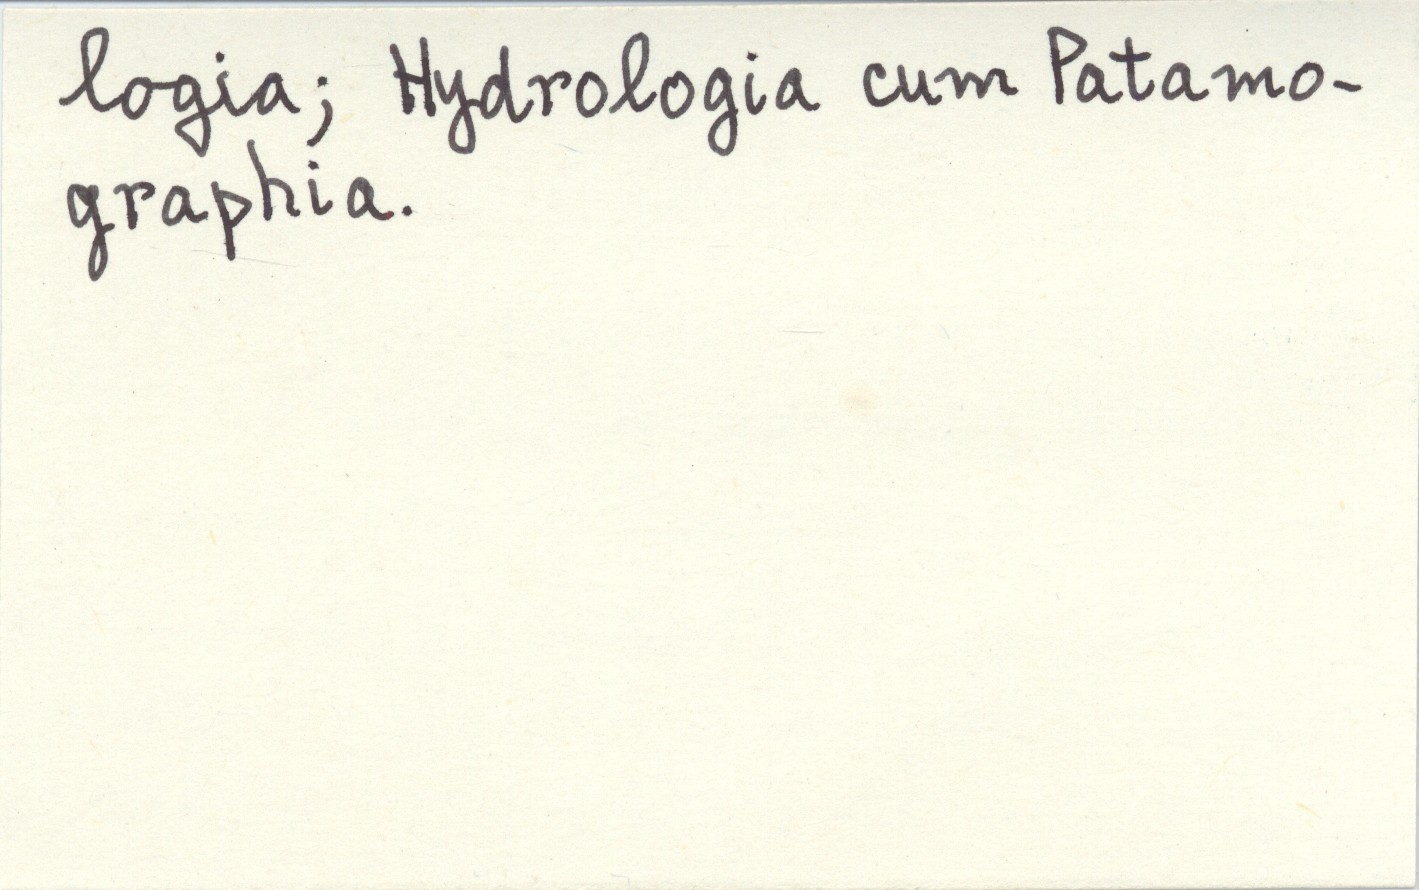 logia; Hydrologia cum Patamo-
graphia.